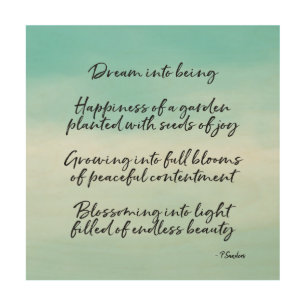 Dream into being
Happiness of a garden
planted with seeds of joy
Growing into full blooms
of peaceful contentment
Blossoming into light
filled of endless beauty
- P.Sanders